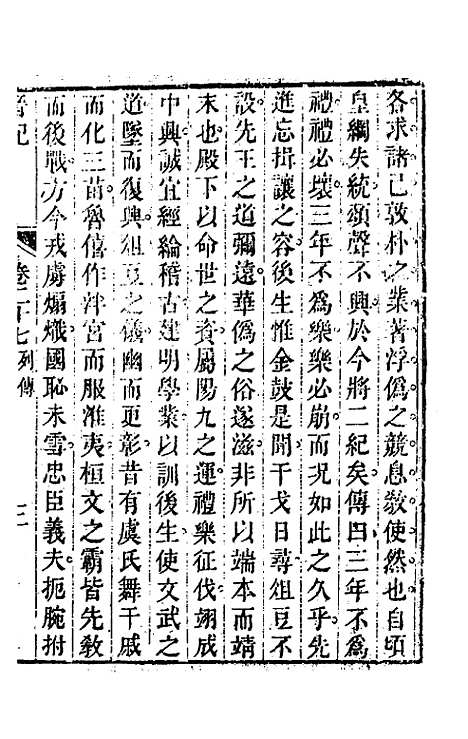 各求諸己敦朴之業著浮偽之競息敎使然也自頃
皇綱失統頌聲不興於今將二紀矣傳曰三年不爲
禮禮必壞三年不爲樂樂必崩而况如此之久乎先
進忘揖讓之容後生惟金鼓是聞干戈日尋俎豆不
設先王之道彌遠華偽之俗遂滋非所以端本而靖
末也殿下以命世之資屬陽九之運禮樂征伐翊成
中興誠宜經綸稽古建明學業以訓後生使文武之
道墜而復興俎豆之儀幽而更彰昔有虞氏舞干戚
而化三苗魯僖作泮宮而服淮夷桓文之霸皆先敎
而後戰方今戎虜煽熾國恥未雪忠臣義夫扼腕拊
晉記 卷二十七 列傳 三